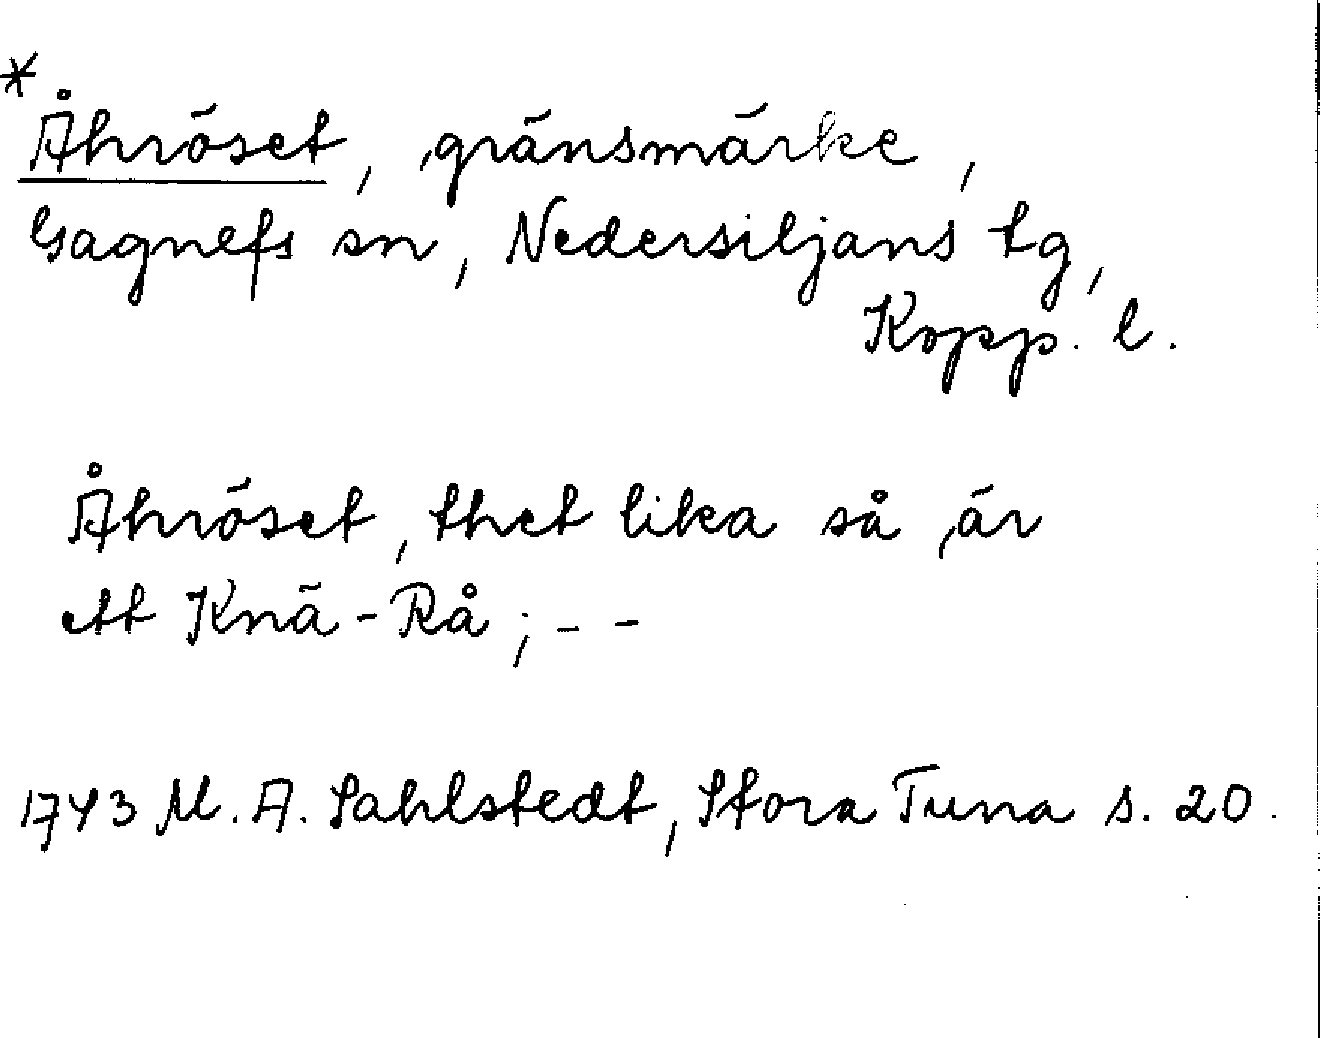 *
Åhröset, gränsmärke,
Gagnefs sn, Nedersiljans tg,
Kopp. l.
Åhröset, thet lika så är
ett Knä-Rå; - -
1743 M. A. Sahlstedt, Stora Tuna s. 20.